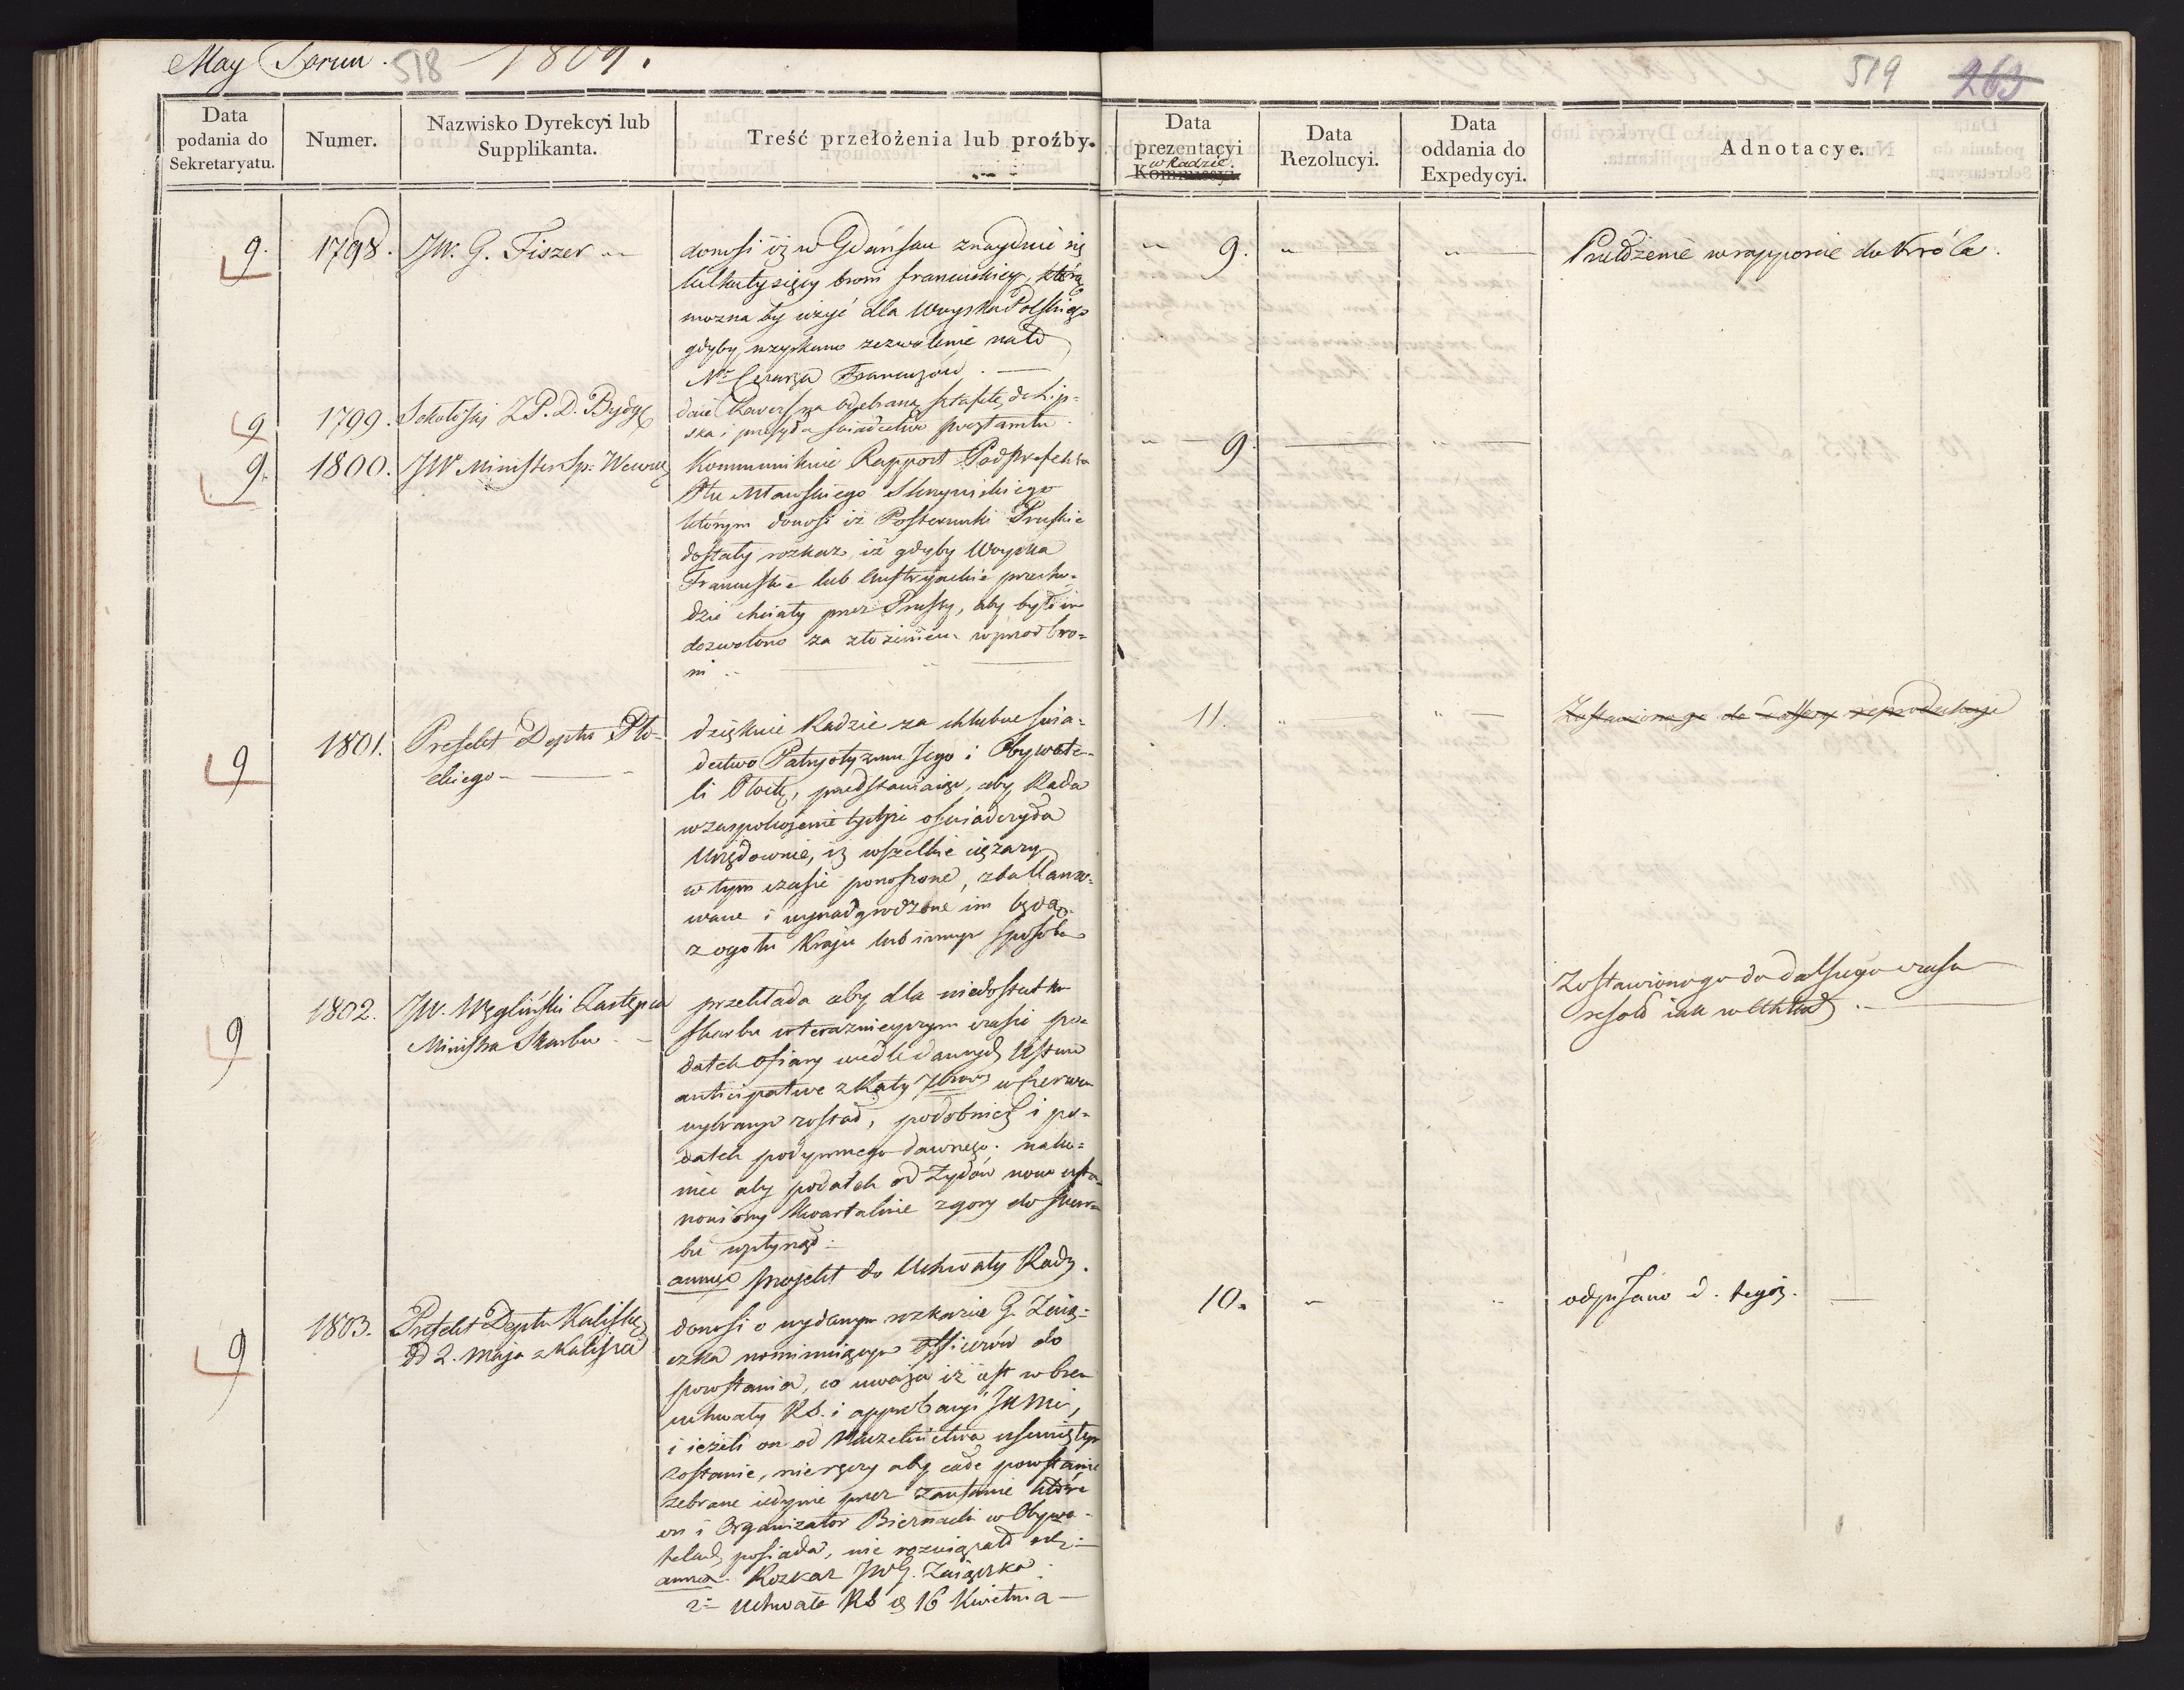 May Toruń. 518 1809.
519 263
Data podania do Sekretaryatu.
Numer.
Nazwisko Dyrekcyi lub Supplikanta.
Treść przełożenia lub proźby.
Data prezentacyi w Radzie. Kommissyi.
Data Rezolucyi.
Data oddania do Expedycyi.
Adnotacye.
9. 1798. JW. G. Fiszer
donosi iż w Gdańsku znayduie się
kilka tysięcy broni francuskiey, którą
mozna by użyć dla Woyska Polskiego
gdyby uzyskano zezwolenie na to
Nº Cesarza Francuzów.
9. Przełożenie w rapporcie do Króla.
9 1799. Sokolski Z P. D. Bydg
daie Rewers na odebraną sztafetę do Lip=
ska i przesyła świadectwo pocztamtu.
9. 1800. JW Minister Sp: Wewnę
Kommunikuie Rapport Podprefekta
Ptu Mławskiego
którym donosi iż Posterunki Pruskie
dostały rozkaz, iż gdyby Woyska
Francuskie lub Austryackie przecho=
dzić chciały przez Prussy, aby było im
dozwolono za złożeniem wprzod bro=
ni
9
9 1801. Prefekt Deptu Pło=
ckiego
dziękuie Radzie za chlubne świa=
dectwo Patryotyzmu Jego i Obywate=
li Płocke, przedstawiaiąc, aby Rada
w zaspokoienie tychże oświadczyła
Urzędownie, iż wszelkie ciężary
w tym czasie ponoszone, zballanso=
wane i wynadgrodzone im będą
z ogołu Kraju lub innym sposobe
11. Zostawiono go do dalszey reprodukcyi
9 1802. JW. Węgliński Zastępca
Ministra Skarbu
przekłada aby dla niedostatku
skarbu w teraznieyszym czasie po=
datek ofiary wedle dawnych Ustaw
anticipative z Raty w Czerwcu
wybranym został, podobnież i po=
datek podymnego dawnego. nako=
niec aby podatek od Żydów nowo usta=
nowiony Kwartalnie z gory do skar=
bu wpłynął.
annexo projekt do Uchwały Rady.
Zostawiono go do dalszego czasu
9 1803. Prefekt Deptu Kaliskie
dd 2. maja z Kalisza
donosi o wydanym rozkazie G. Zaią=
czka nominuiącym officierów do
powstania, co uważa iż iest wbrew
uchwały RS. i approbacyi JKMci,
i ieżeli on od Naczelnictwa usunięty
zostanie, nieręczy aby całe powstanie
zebrane iedynie przez zaufanie które
on i Organizator Biernacki w Obywa=
telach posiada, nie rozwiązało się.
annexa. Rozkaz JWG. Zaiączka.
2º Uchwała RS z 16 Kwietnia
10. odpisano d. tegoż.